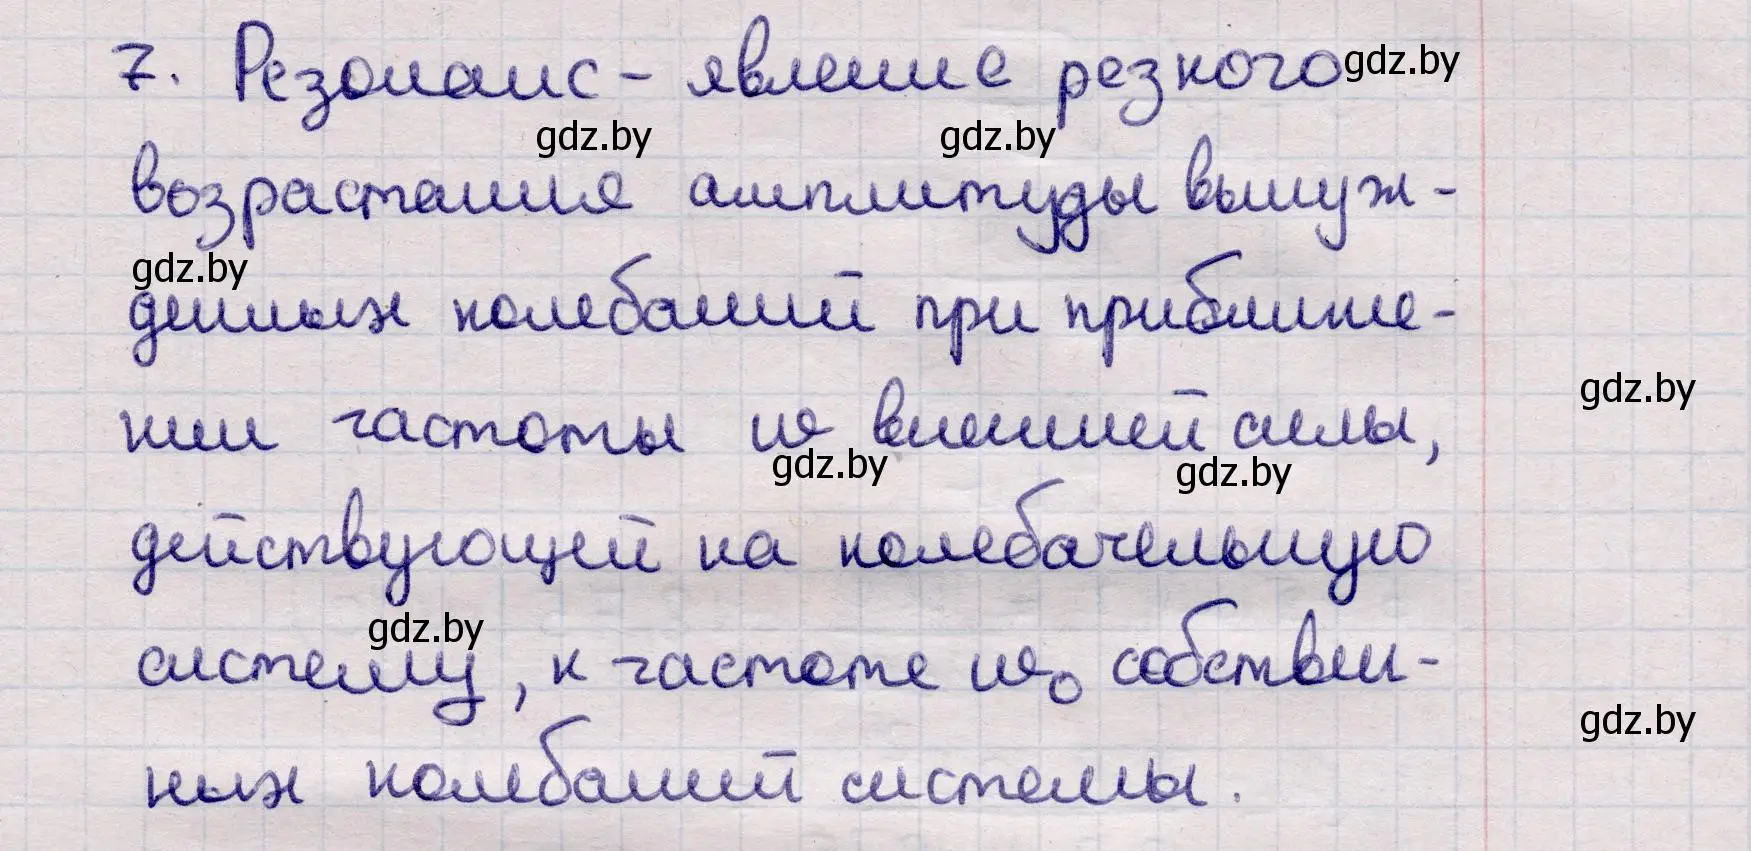 7. Резонанс - явление резкого
возрастания амплитуды вынуж-
денных колебаний при приближе-
нии частоты ω внешней силы,
действующей на колебательную
систему, к частоте ω₀ собствен-
ных колебаний системы.
gdz.by
gdz.by
gdz.by
gdz.by
gdz.by
gdz.by
gdz.by
gdz.by
gdz.by